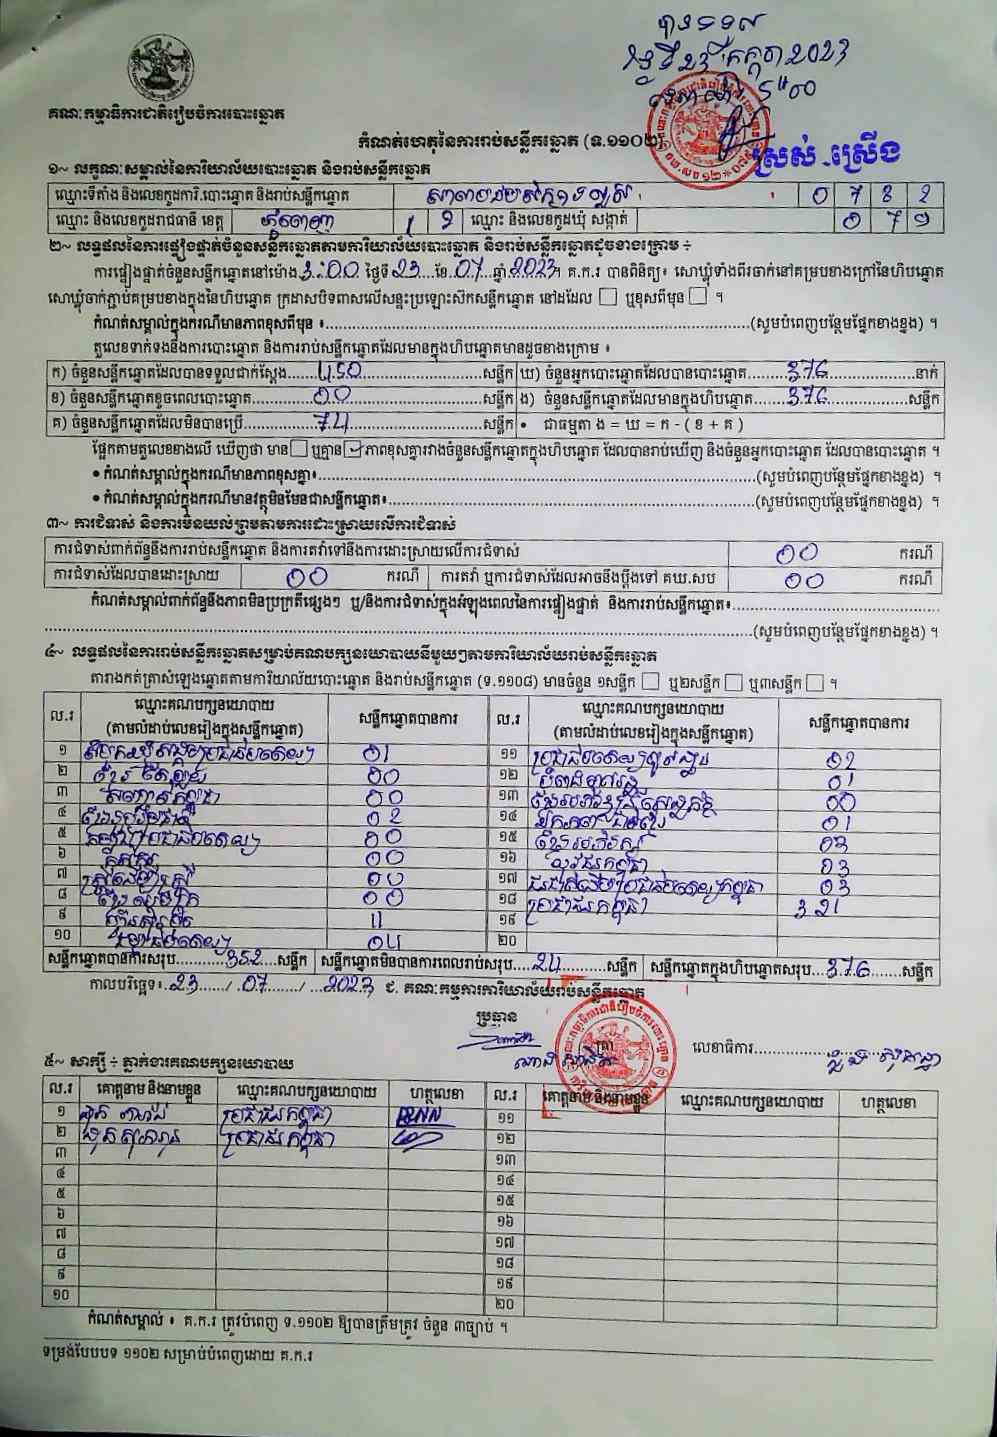 បានទទួល
ថ្ងៃទី២៣ កក្កដា 2023
ម៉ោង 5:00
ស្រស់ ស្រឿង
គណៈកម្មាធិការជាតិរៀបចំការបោះឆ្នោត
កំណត់ហេតុនៃការរាប់សន្លឹកឆ្នោត (ទ.១១០២)
១~ លក្ខណៈសម្គាល់នៃការិយាល័យបោះឆ្នោត និងរាប់សន្លឹកឆ្នោត
ឈ្មោះទីតាំង និងលេខកូដការិ.បោះឆ្នោត និងរាប់សន្លឹកឆ្នោត 0 7 3 2
ឈ្មោះ និងលេខកូដរាជធានី ខេត្ត ភ្នំពេញ 1 2 ឈ្មោះ និងលេខកូដឃុំ សង្កាត់ 0 7 9
២~ លទ្ធផលនៃការផ្ទៀងផ្ទាត់ចំនួនសន្លឹកឆ្នោតតាមការិយាល័យបោះឆ្នោត និងរាប់សន្លឹកឆ្នោតដូចខាងក្រោម ÷
ការផ្ទៀងផ្ទាត់ចំនួនសន្លឹកឆ្នោតនៅម៉ោង 3:00 ថ្ងៃទី 23 ខែ 07 ឆ្នាំ 2023។ គ.ក.រ បានពិនិត្យ៖ សោឃ្លុំទាំងពីរចាក់នៅគម្របខាងក្រៅនៃហិបឆ្នោត
សោឃ្លុំចាក់ភ្ជាប់គម្របខាងក្នុងនៃហិបឆ្នោត ក្រដាសបិទពាសលើសន្ទះប្រឡោះស៊កសន្លឹកឆ្នោត នៅដដែល ឬខុសពីមុន ។
កំណត់សម្គាល់ក្នុងករណីមានភាពខុសពីមុន ៖ (សូមបំពេញបន្ថែមផ្នែកខាងខ្នង) ។
តួលេខទាក់ទងនឹងការបោះឆ្នោត និងការរាប់សន្លឹកឆ្នោតដែលមានក្នុងហិបឆ្នោតមានដូចខាងក្រោម ៖
ក) ចំនួនសន្លឹកឆ្នោតដែលបានទទួលជាក់ស្តែង 450 សន្លឹក ឃ) ចំនួនអ្នកបោះឆ្នោតដែលបានបោះឆ្នោត 376 នាក់
ខ) ចំនួនសន្លឹកឆ្នោតខូចពេលបោះឆ្នោត 00 សន្លឹក ង) ចំនួនសន្លឹកឆ្នោតដែលមានក្នុងហិបឆ្នោត 376 សន្លឹក
គ) ចំនួនសន្លឹកឆ្នោតដែលមិនបានប្រើ 74 សន្លឹក • ជាធម្មតា ង = ឃ = ក - ( ខ + គ )
ផ្អែកតាមតួលេខខាងលើ ឃើញថា មាន ឬគ្មាន ភាពខុសគ្នារវាងចំនួនសន្លឹកឆ្នោតក្នុងហិបឆ្នោត ដែលបានរាប់ឃើញ និងចំនួនអ្នកបោះឆ្នោត ដែលបានបោះឆ្នោត ។
• កំណត់សម្គាល់ក្នុងករណីមានភាពខុសគ្នា៖ (សូមបំពេញបន្ថែមផ្នែកខាងខ្នង) ។
• កំណត់សម្គាល់ក្នុងករណីមានវត្ថុមិនមែនជាសន្លឹកឆ្នោត៖ (សូមបំពេញបន្ថែមផ្នែកខាងខ្នង) ។
៣~ ការជំទាស់ និងការមិនយល់ព្រមតាមការដោះស្រាយលើការជំទាស់
ការជំទាស់ពាក់ព័ន្ធនឹងការរាប់សន្លឹកឆ្នោត និងការតវ៉ាទៅនឹងការដោះស្រាយលើការជំទាស់ 00 ករណី
ការជំទាស់ដែលបានដោះស្រាយ 00 ករណី ការតវ៉ា ឬការជំទាស់ដែលអាចនឹងប្តឹងទៅ គឃ.សប 00 ករណី
កំណត់សម្គាល់ពាក់ព័ន្ធនឹងភាពមិនប្រក្រតីផ្សេងៗ ឬ/និងការជំទាស់ក្នុងអំឡុងពេលនៃការផ្ទៀងផ្ទាត់ និងការរាប់សន្លឹកឆ្នោត៖
(សូមបំពេញបន្ថែមផ្នែកខាងខ្នង) ។
៤~ លទ្ធផលនៃការរាប់សន្លឹកឆ្នោតសម្រាប់គណបក្សនយោបាយនីមួយៗតាមការិយាល័យរាប់សន្លឹកឆ្នោត
តារាងកត់ត្រាសំឡេងឆ្នោតតាមការិយាល័យបោះឆ្នោត និងរាប់សន្លឹកឆ្នោត (ទ.១១០៨) មានចំនួន ១សន្លឹក ឬ២សន្លឹក ឬ៣សន្លឹក ។
ល.រ ឈ្មោះគណបក្សនយោបាយ (តាមលំដាប់លេខរៀងក្នុងសន្លឹកឆ្នោត) សន្លឹកឆ្នោតបានការ ល.រ ឈ្មោះគណបក្សនយោបាយ (តាមលំដាប់លេខរៀងក្នុងសន្លឹកឆ្នោត) សន្លឹកឆ្នោតបានការ
១ 01 ១១ 02
២ 00 ១២ 01
៣ 00 ១៣ 00
៤ 02 ១៤ 01
៥ 00 ១៥ 03
៦ 00 ១៦ 03
៧ 00 ១៧ 03
៨ 00 ១៨ ប្រជាជនកម្ពុជា 321
៩ 11 ១៩
១០ 04 ២០
សន្លឹកឆ្នោតបានការសរុប 352 សន្លឹក សន្លឹកឆ្នោតមិនបានការពេលរាប់សរុប 24 សន្លឹក សន្លឹកឆ្នោតក្នុងហិបឆ្នោតសរុប 376 សន្លឹក
កាលបរិច្ឆេទ៖ 23 / 07 / 2023 ជ. គណៈកម្មការការិយាល័យរាប់សន្លឹកឆ្នោត
ប្រធាន
ត្រា លេខាធិការ
៥~ សាក្សី ÷ ភ្នាក់ងារគណបក្សនយោបាយ
ល.រ គោត្តនាម និងនាមខ្លួន ឈ្មោះគណបក្សនយោបាយ ហត្ថលេខា ល.រ គោត្តនាម និងនាមខ្លួន ឈ្មោះគណបក្សនយោបាយ ហត្ថលេខា
១ ប្រជាជនកម្ពុជា ១១
២ ប្រជាជនកម្ពុជា ១២
៣ ១៣
៤ ១៤
៥ ១៥
៦ ១៦
៧ ១៧
៨ ១៨
៩ ១៩
១០ ២០
កំណត់សម្គាល់ ៖ គ.ក.រ ត្រូវបំពេញ ទ.១១០២ ឱ្យបានត្រឹមត្រូវ ចំនួន ៣ច្បាប់ ។
ទម្រង់បែបបទ ១១០២ សម្រាប់បំពេញដោយ គ.ក.រ